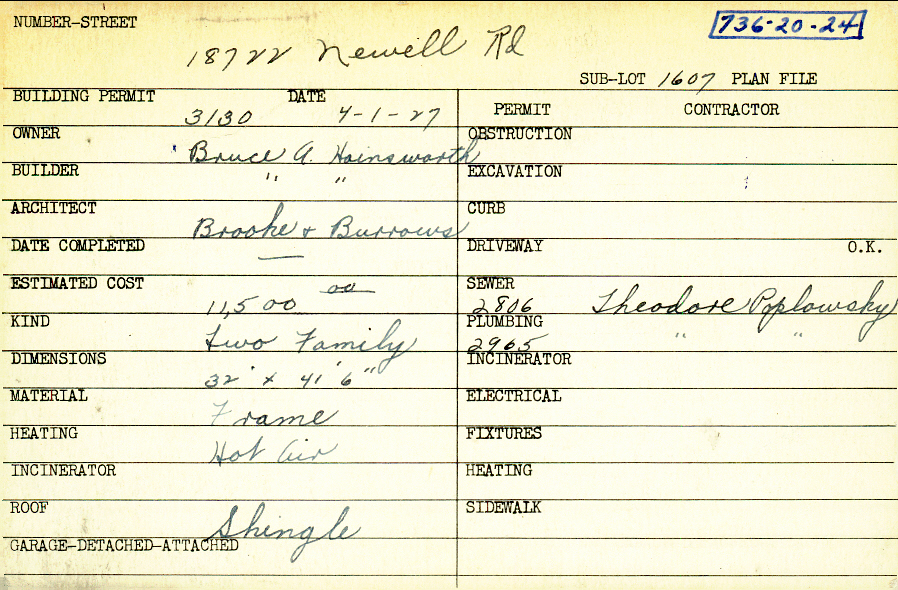 NUMBER-STREET
736-20-24
18722 Newell Rd
SUB-LOT 1607 PLAN FILE
BUILDING PERMIT DATE
3130 4-1-27
PERMIT CONTRACTOR
OWNER
Bruce A. Hainsworth
OBSTRUCTION
BUILDER
" "
EXCAVATION
ARCHITECT
Brooke & Burrows
CURB
DATE COMPLETED
—
DRIVEWAY O.K.
ESTIMATED COST
11,500 00
SEWER
2806 Theodore Poplowsky
KIND
Two Family
PLUMBING
2965 " "
DIMENSIONS
32' x 41'6"
INCINERATOR
MATERIAL
Frame
ELECTRICAL
HEATING
Hot Air
FIXTURES
INCINERATOR
HEATING
ROOF
Shingle
SIDEWALK
GARAGE-DETACHED-ATTACHED